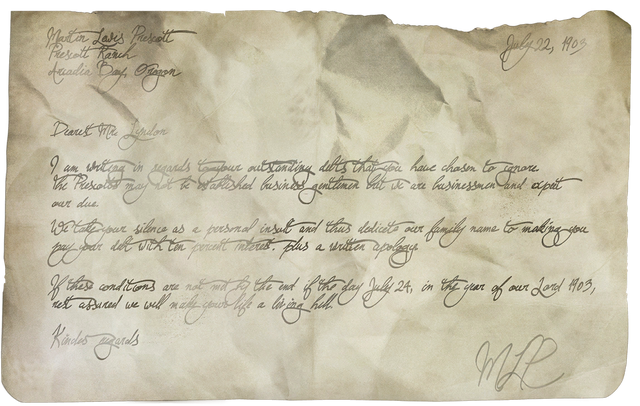 Martin Lewis Prescott
July 22, 1903
Prescott Ranch
Arcadia Bay, Oregon
Dearest Mr. Lyndon
I am writing in regards to your outstanding debts that you have chosen to ignore
the Prescotts may not be established business gentlemen but we are businessmen and expect
our due.
We take your silence as a personal insult and thus dedicate our family name to making you
pay your debt with ten percent interest. plus a written apology.
If these conditions are not met by the end of the day July 24, in the year of our Lord 1903,
rest assured we will make your life a living hell.
Kindest regards
MLP